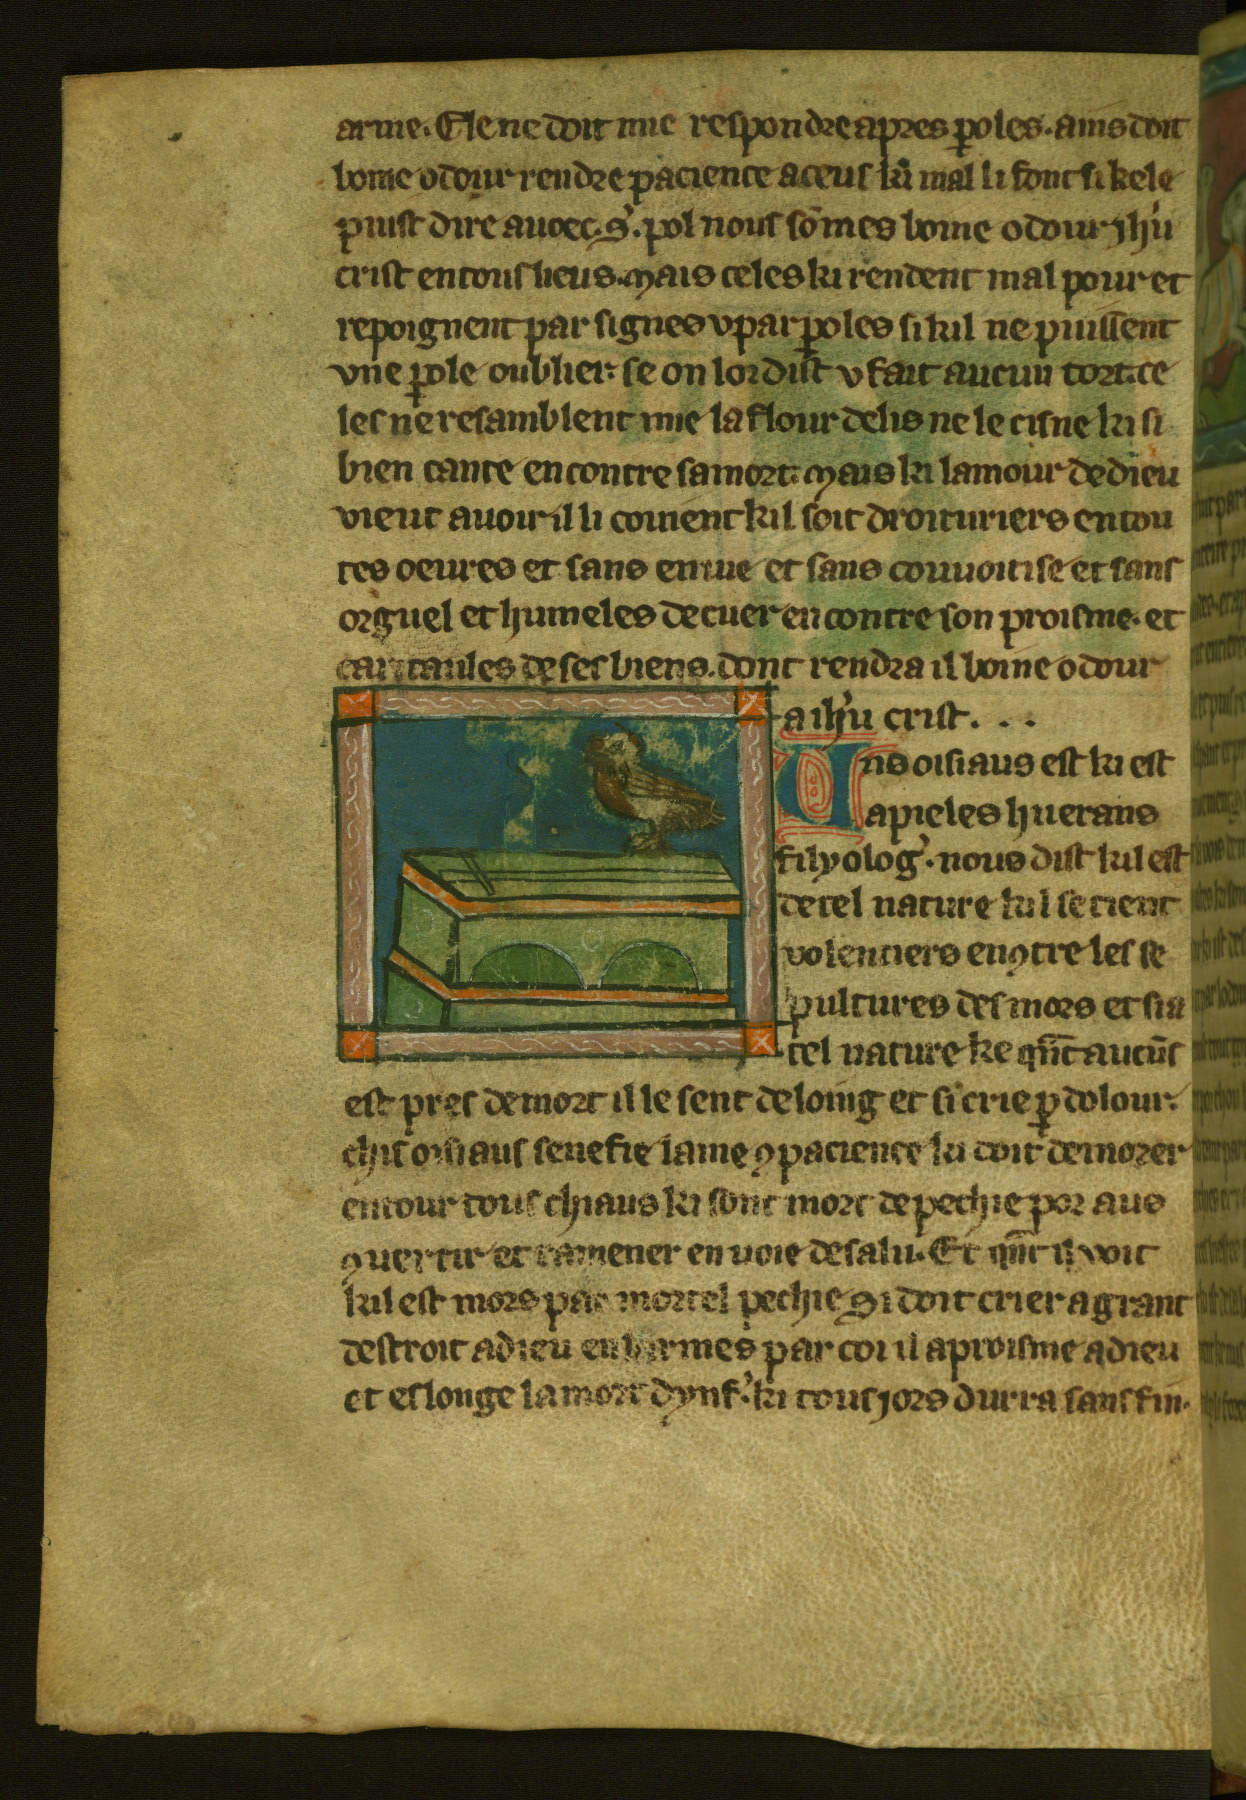 arme. Ele ne doit mie respondre apres p̱oles. ains doit
boine odour rendre pacience a ceus ki mal li font si kele
puist dire auoec. S'. pol nous sōmes boine odour ih̄u
crist en tous lieus. Mais celes ki rendent mal pour et
repoignent par signes v par p̱oles si kil ne puissent
vne p̱ole oublier: se on lor dist v fait aucun tort. ce
les ne resamblent mie la flour de lis ne le cisne ki si
bien cante encontre sa mort. Mais ki lamour de dieu
vieut auoir il li couient kil soit droituriers en tou
tes oeures et sans enuie et sans couuoitise et sans
orguel et humeles de cuer encontre son proisme. et
caritaules de ses biens. dont rendra il boine odour
a ih̄u crist. . .
Uns oisiaus est ki est
apieles huerans
filyolog'. nous dist kil est
de tel nature kil se tient
volentiers enꝯtre les se
pultures des mors et si a
tel nature ke qn̄t aucūs
est pres de mort il le sent de loing et si crie ꝑ dolour.
chis oisiaus senefie lame ꝯpacience ki doit demorer
entour tous chiaus ki sont mort de pechie por aus
ꝯuertir et ramener en uoie de salu. Et qn̄t il voit
kil est mors par mortel pechie Si doit crier a grant
destroit a dieu en larmes par coi il aproisme a dieu
et eslonge la mort dynf'. ki tous jors durra sans fin.